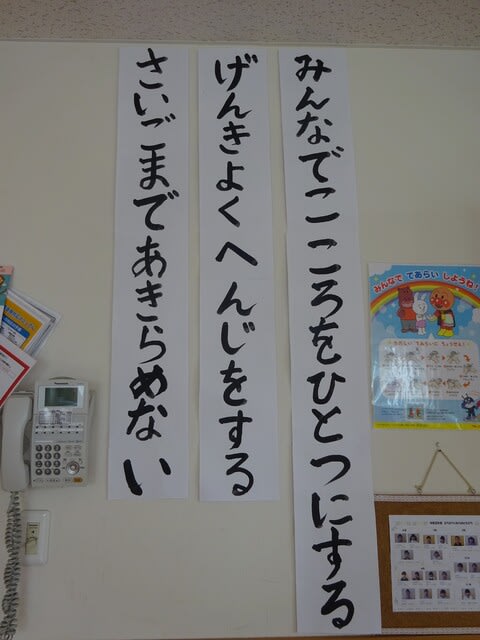 みんなでこころをひとつにする
げんきよくへんじをする
さいごまであきらめない
みんなで てあらい しようね!
Panasonic